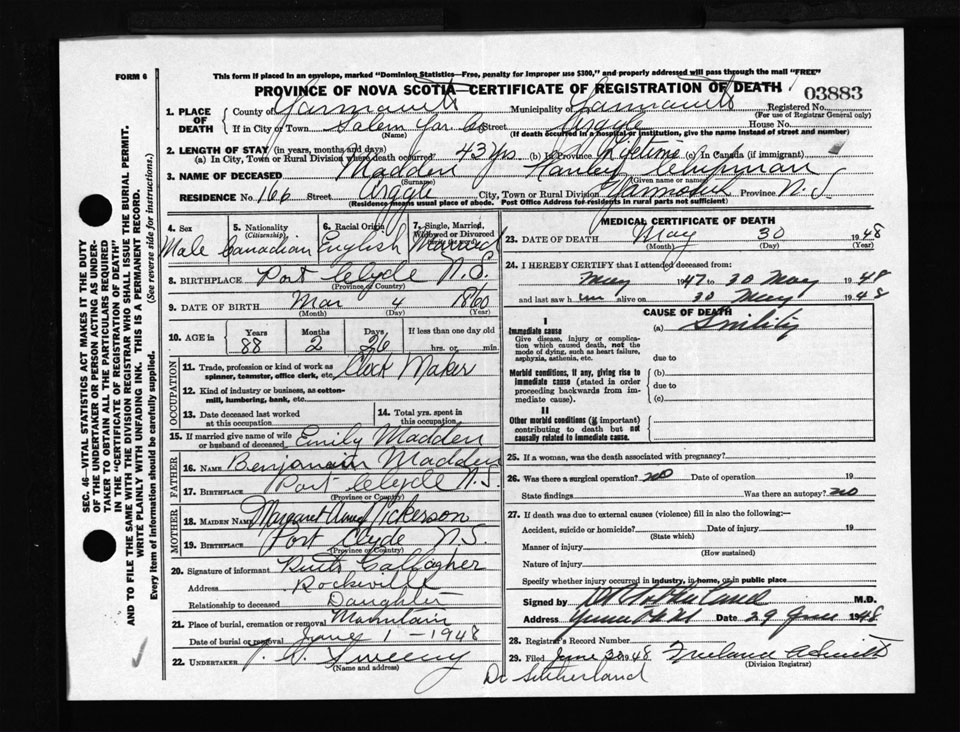 FORM 6
This form if placed in an envelope, marked "Dominion Statistics—Free, penalty for improper use $300," and properly addressed will pass through the mail "FREE"
PROVINCE OF NOVA SCOTIA—CERTIFICATE OF REGISTRATION OF DEATH
03883
1. PLACE OF DEATH
County of Yarmouth Municipality of Yarmouth Registered No.
(For use of Registrar General only)
If in City or Town Salem Yar Co Street Argyle House No.
(Name) (If death occurred in a hospital or institution, give the name instead of street and number)
2. LENGTH OF STAY (in years, months and days)
(a) In City, Town or Rural Division where death occurred 43 yrs (b) In Province Lifetime (c) In Canada (if immigrant)
3. NAME OF DECEASED Madden Hanley
(Surname) (Given name or names)
RESIDENCE No. 166 Street Argyle City, Town or Rural Division Yarmouth Province N.S
(Residence means usual place of abode. Post Office Address for residents in rural parts not sufficient)
4. Sex 5. Nationality (Citizenship) 6. Racial Origin 7. Single, Married, Widowed or Divorced
Male Canadian English Married
8. BIRTHPLACE Port Clyde N.S.
(Province or Country)
9. DATE OF BIRTH Mar 4 1860
(Month) (Day) (Year)
10. AGE in Years Months Days If less than one day old
88 2 26 hrs. or min.
OCCUPATION
11. Trade, profession or kind of work as spinner, teamster, office clerk, etc. Clock Maker
12. Kind of industry or business, as cotton-mill, lumbering, bank, etc.
13. Date deceased last worked at this occupation
14. Total yrs. spent in this occupation
15. If married give name of wife or husband of deceased Emily Madden
FATHER
16. NAME Benjamin Madden
17. BIRTHPLACE Port Clyde N.S.
(Province or Country)
MOTHER
18. MAIDEN NAME Margaret Ann Nickerson
19. BIRTHPLACE Port Clyde N.S.
(Province or Country)
20. Signature of informant Ruth Gallagher
Address Rockville
Relationship to deceased Daughter
21. Place of burial, cremation or removal Mountain
Date of burial or removal June 1 - 1948
22. UNDERTAKER Sweeny
(Name and address)
MEDICAL CERTIFICATE OF DEATH
23. DATE OF DEATH May 30 1948
(Month) (Day) (Year)
24. I HEREBY CERTIFY that I attended deceased from:
May 1947 to 30 May 1948
and last saw him alive on 30 May 1948
CAUSE OF DEATH
I
Immediate cause (a) Senility
Give disease, injury or complication which caused death, not the mode of dying, such as heart failure, asphyxia, asthenia, etc. due to
Morbid conditions, if any, giving rise to immediate cause (stated in order proceeding backwards from immediate cause) (b) due to (c)
II
Other morbid conditions (if important) contributing to death but not causally related to immediate cause.
25. If a woman, was the death associated with pregnancy?
26. Was there a surgical operation? no Date of operation 19
State findings Was there an autopsy? no
27. If death was due to external causes (violence) fill in also the following:—
Accident, suicide or homicide? Date of injury 19
(State which)
Manner of injury
(How sustained)
Nature of injury
Specify whether injury occurred in industry, in home, or in public place
Signed by M.D.
Address Date 29 June 1948
28. Registrar's Record Number
29. Filed June 30 1948
(Division Registrar)
Dr Sutherland
SEC. 46—VITAL STATISTICS ACT MAKES IT THE DUTY
OF THE UNDERTAKER OR PERSON ACTING AS UNDER-
TAKER TO OBTAIN ALL THE PARTICULARS REQUIRED
IN THE "CERTIFICATE OF REGISTRATION OF DEATH"
AND TO FILE THE SAME WITH THE DIVISION REGISTRAR WHO SHALL ISSUE THE BURIAL PERMIT.
WRITE PLAINLY WITH UNFADING INK. THIS IS A PERMANENT RECORD.
Every item of information should be carefully supplied. (See reverse side for instructions.)